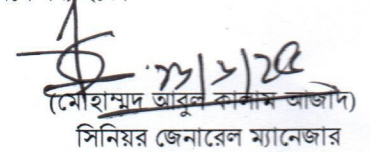 (মোহাম্মদ আবুল কালাম আজাদ)
সিনিয়র জেনারেল ম্যানেজার